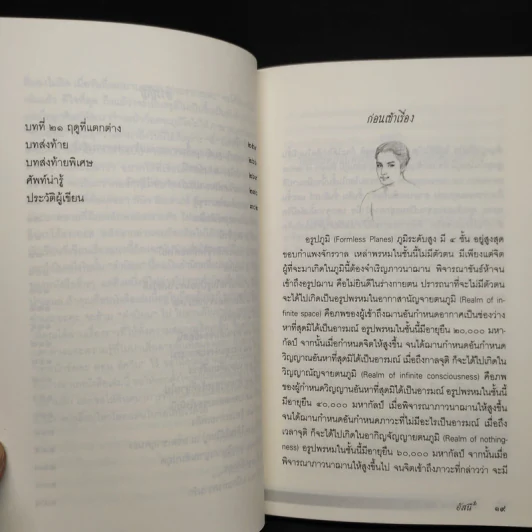 บทที่ ๒๑ ฤดูที่แตกต่าง
บทส่งท้าย
บทส่งท้ายพิเศษ
ศัพท์น่ารู้
ประวัติผู้เขียน
ก่อนเข้าเรื่อง
อรูปภูมิ (Formless Planes) ภูมิระดับสูง มี ๔ ชั้น อยู่สูงสุด
ขอบกำแพงจักรวาล เหล่าพรหมในชั้นนี้ไม่มีตัวตน มีเพียงแต่จิต
ผู้ที่จะมาเกิดในภูมินี้ต้องจำเริญภาวนาฌาน พิจารณาขันธ์ห้าจน
เข้าถึงอรูปฌาน คือไม่ยินดีในร่างกายตน ปรารถนาที่จะไม่มีตัวตน
จะได้ไปเกิดเป็นอรูปพรหมในอากาสานัญจายตนภูมิ (Realm of in-
finite space) คือภพของผู้เข้าถึงฌานอันกำหนดอากาศเป็นช่องว่าง
หาที่สุดมิได้เป็นอารมณ์ อรูปพรหมในชั้นนี้มีอายุยืน ๒๐,๐๐๐ มหา-
กัลป์ จากนั้นเมื่อกำหนดจิตให้สูงขึ้น จนได้ฌานกำหนดอันกำหนด
วิญญาณอันหาที่สุดมิได้เป็นอารมณ์ เมื่อถึงกาลจุติ ก็จะได้ไปเกิดใน
วิญญาณัญจายตนภูมิ (Realm of infinite consciousness) คือภพ
ของผู้กำหนดวิญญาณอันหาที่สุดมิได้เป็นอารมณ์ อรูปพรหมในชั้นนี้
มีอายุยืน ๔๐,๐๐๐ มหากัลป์ เมื่อพิจารณาภาวนาฌานให้สูงขึ้น
จนได้ฌานกำหนดอันกำหนดภาวะที่ไม่มีอะไรเป็นอารมณ์ เมื่อถึง
เวลาจุติ ก็จะได้ไปเกิดในอากิญจัญญายตนภูมิ (Realm of nothing-
ness) อรูปพรหมในชั้นนี้มีอายุยืน ๖๐,๐๐๐ มหากัลป์ จากนั้นเมื่อ
พิจารณาภาวนาฌานให้สูงขึ้นไป จนจิตเข้าถึงภาวะที่กล่าวว่า จะมี
อัสนี ๑๙